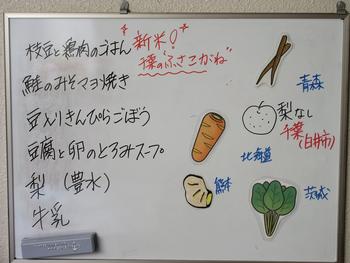 枝豆と鶏肉のごはん
*新米!*
千葉"ふさこがね"
鮭のみそマヨ焼き
豆入りきんぴらごぼう
豆腐と卵のとろみスープ
梨 (豊水)
牛乳
青森
梨なし
千葉(白井市)
北海道
熊本
茨城